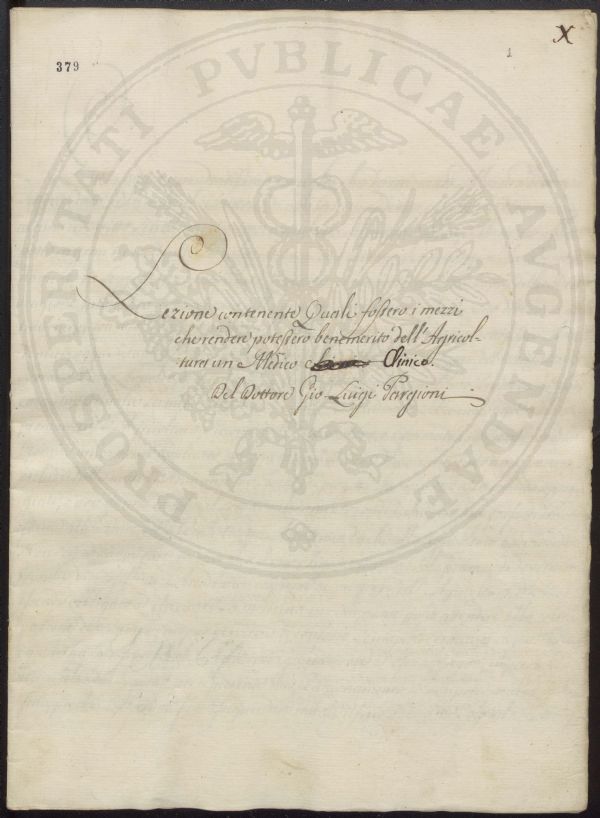 X
1
379
PROSPERITATI PVBLICAE AVGENDAE
Lezione contenente Quali fossero i mezzi
che rendere potessero benemerito dell'Agricol-
tura un Medico e Clinico.
Del Dottore Gio. Luigi Targioni